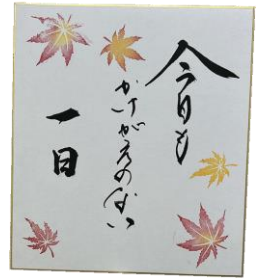 今日も
かけがえのない
一日